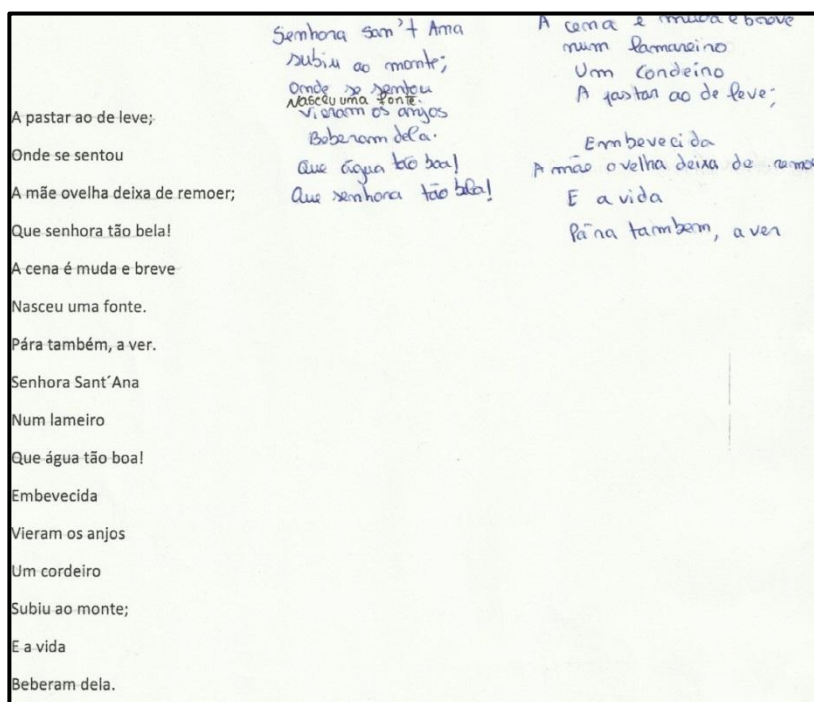 A pastar ao de leve;
Onde se sentou
A mãe ovelha deixa de remoer;
Que senhora tão bela!
A cena é muda e breve
Nasceu uma fonte.
Pára também, a ver.
Senhora Sant´Ana
Num lameiro
Que água tão boa!
Embevecida
Vieram os anjos
Um cordeiro
Subiu ao monte;
E a vida
Beberam dela.
Senhora San't Ana
subiu ao monte;
Onde se sentou
Nasceu uma fonte.
Vieram os anjos
Beberam dela.
Que água tão boa!
Que senhora tão bela!
A cena é muda e breve
num lamareiro
Um condeiro
A pastar ao de leve;
Embevecida
A mão ovelha deixa de remo
E a vida
Pára tambem, a ver